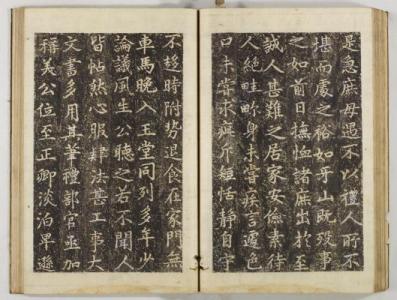 是急庶母遇不以禮人所不
堪而處之裕如牙山既歿事
之如前日撫恤諸庶出於至
誠人甚難之居家安儉素待
人絶畦畛身未嘗疾言遽色
口未嘗求疵斥短恬靜自守
不趍時附势退食在家門無
車馬晩入玉堂同列多年少
論議風生公聽之若不聞人
皆帖然心服肆法甚工事大
文書多用其筆禮部官亟加
稱美公位至正卿淡泊早遜